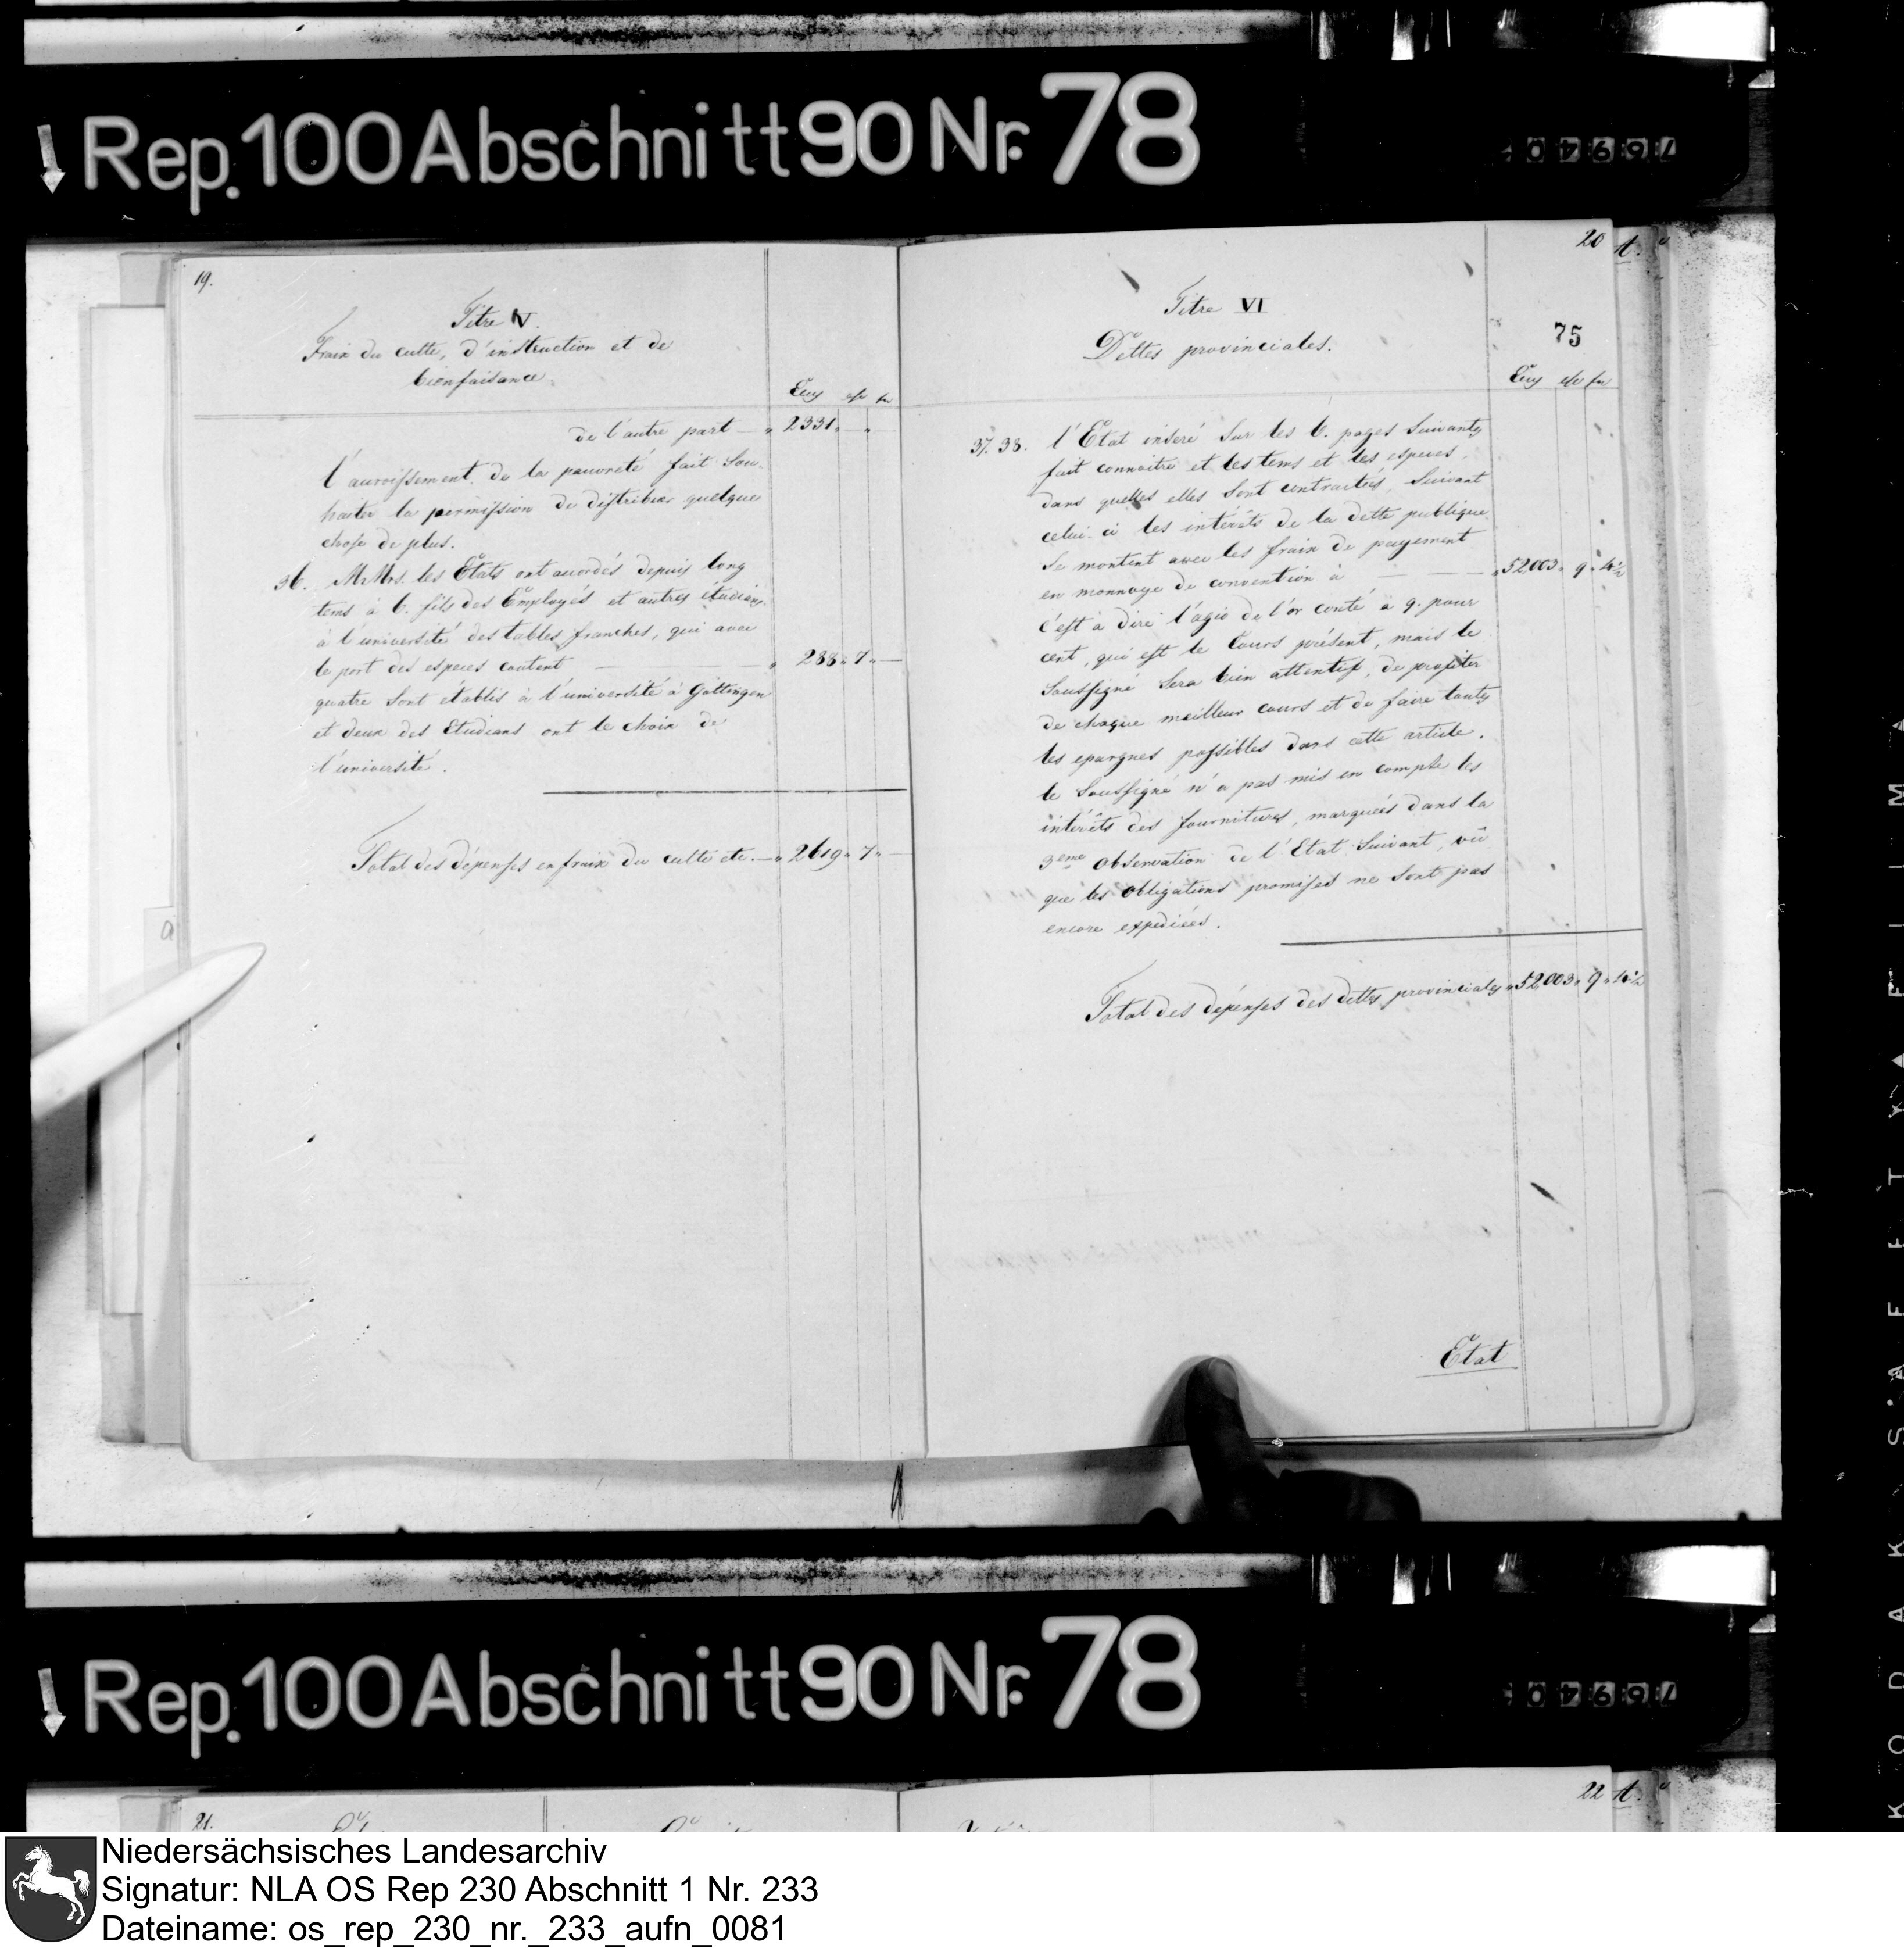 Rep. 100 Abschnitt 90 Nr. 78
19.
Titre V.
Fraix du culte, d'instruction et de
bienfaisance
de l'autre part — 2331
l'auroissement de la pauvreté fait sou-
haiter la permission de distribuer quelque
chose de plus.
36. MrMrs. les Etats ont accordés depuis long
tems à 6. fils des Employés et autres étudians
à l'université des tables franches, qui avec
le port des especes coutent — 288 " 7 " —
quatre sont établis à l'université à Göttingen
et deux des Etudians ont le choix de
l'université.
Total des dépenses en fraix du culte etc. — 2619 " 7 " —
20
Titre VI
Dettes provinciales.
75
37. 38. l'Etat inseré sur les 6. pages suivantes
fait connoitre et les tems et les especes,
dans quelles elles sont contractées, suivant
celui-ci les intérêts de la dette publique
se montent avec les fraix de payement
en monnoye de convention à — 52003 " 9 " 4½
c'est à dire l'agio de l'or conté à 9. pour
cent, qui est le Cours présent, mais le
Soussigné sera bien attentif, de profiter
de chaque meilleur cours et de faire toutes
les epargnes possibles dans cette article.
le Soussigné n'a pas mis en compte les
intérêts des fournitures, marquées dans la
3eme observation de l'Etat suivant, vû
que les obligations promises ne sont pas
encore expediées.
Total des dépenses des dettes provinciales " 52003 " 9 " 4½
Etat
Rep. 100 Abschnitt 90 Nr. 78
21.
22
KODAK SAFETY FILM
Niedersächsisches Landesarchiv
Signatur: NLA OS Rep 230 Abschnitt 1 Nr. 233
Dateiname: os_rep_230_nr._233_aufn_0081